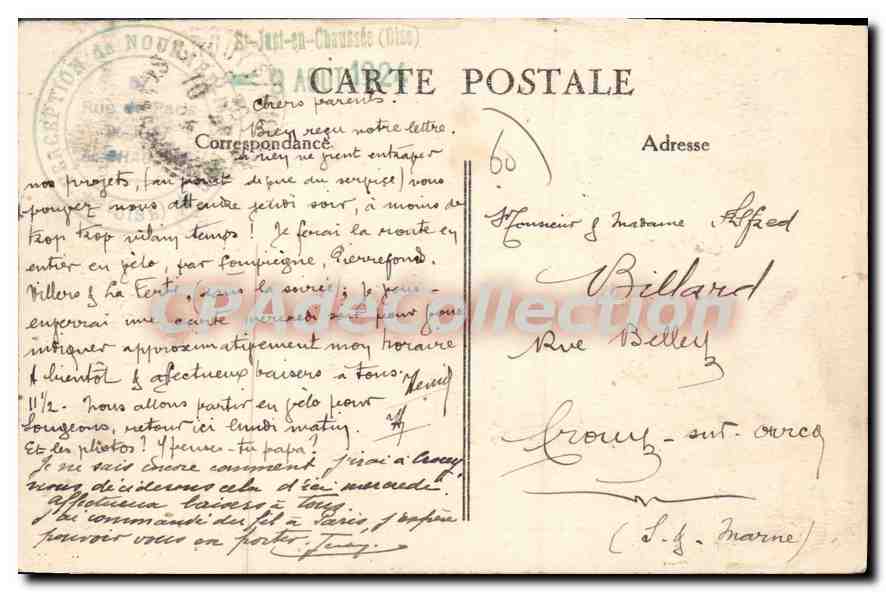 St-Just-en-Chaussée (Oise)
AOUT 1924
PERCEPTION de NOUR
CARTE POSTALE
Correspondance
Adresse
chers parents.
Bien reçu votre lettre.
Si rien ne vient entraver
nos projets, (au point de vue du service) vous
pouvez nous attendre jeudi soir, à moins de
trop trop vilain temps ! Je ferai la route en
entier en vélo, par Compiègne Pierrefond
Villers & La Ferté, dans la soirée ; Je vous
enverrai une carte mercredi soir pour vous
indiquer approximativement mon horaire
A bientôt & affectueux baisers à tous.
11 1/2. Nous allons partir en vélo pour
Songeons, retour ici lundi matin.
Et les photos ? Y penses-tu papa ?
Je ne sais encore comment j'irai à Crouy
nous déciderons cela d'ici mercredi
affectueux baisers à tous
J'ai commandé du fil à Paris, j'espère
pouvoir vous en porter.
60
Monsieur & Madame Alfred
Billard
Rue Belley
Crouy-sur-ourcq
(S. & Marne)
CPADeCollection